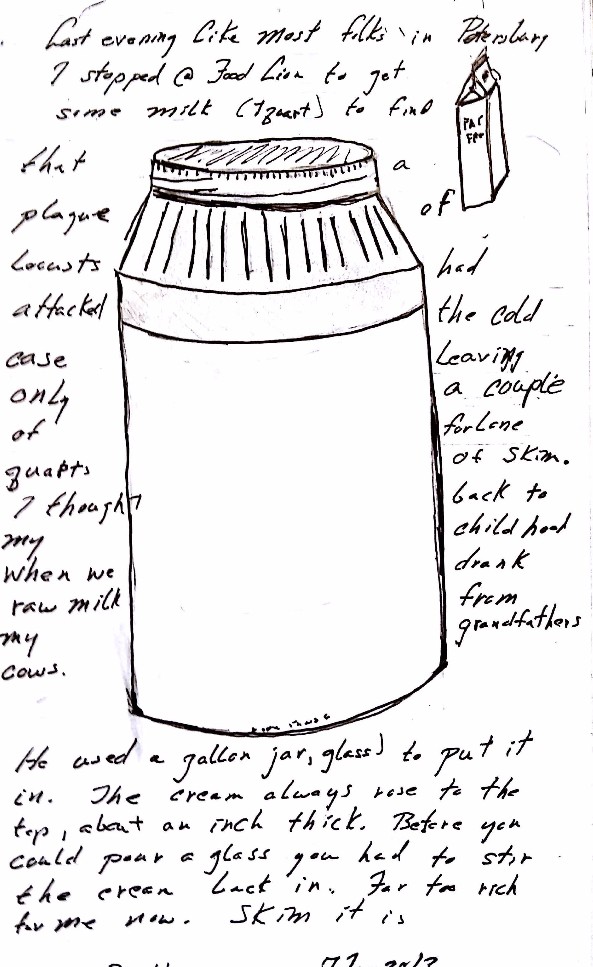 Last evening like most folks in Petersburg
I stopped @ Food Lion to get
some milk (1 quart) to find
FAT
that a
plague of
Locusts had
attacked the cold
case Leaving
only a couple
of forlone
quarts of Skim.
I thought back to
my childhood
When we drank
raw milk from
my grandfathers
cows.
He used a gallon jar, glass) to put it
in. The cream always rose to the
top, about an inch thick. Before you
could pour a glass you had to stir
the cream back in. Far too rich
for me now. Skim it is